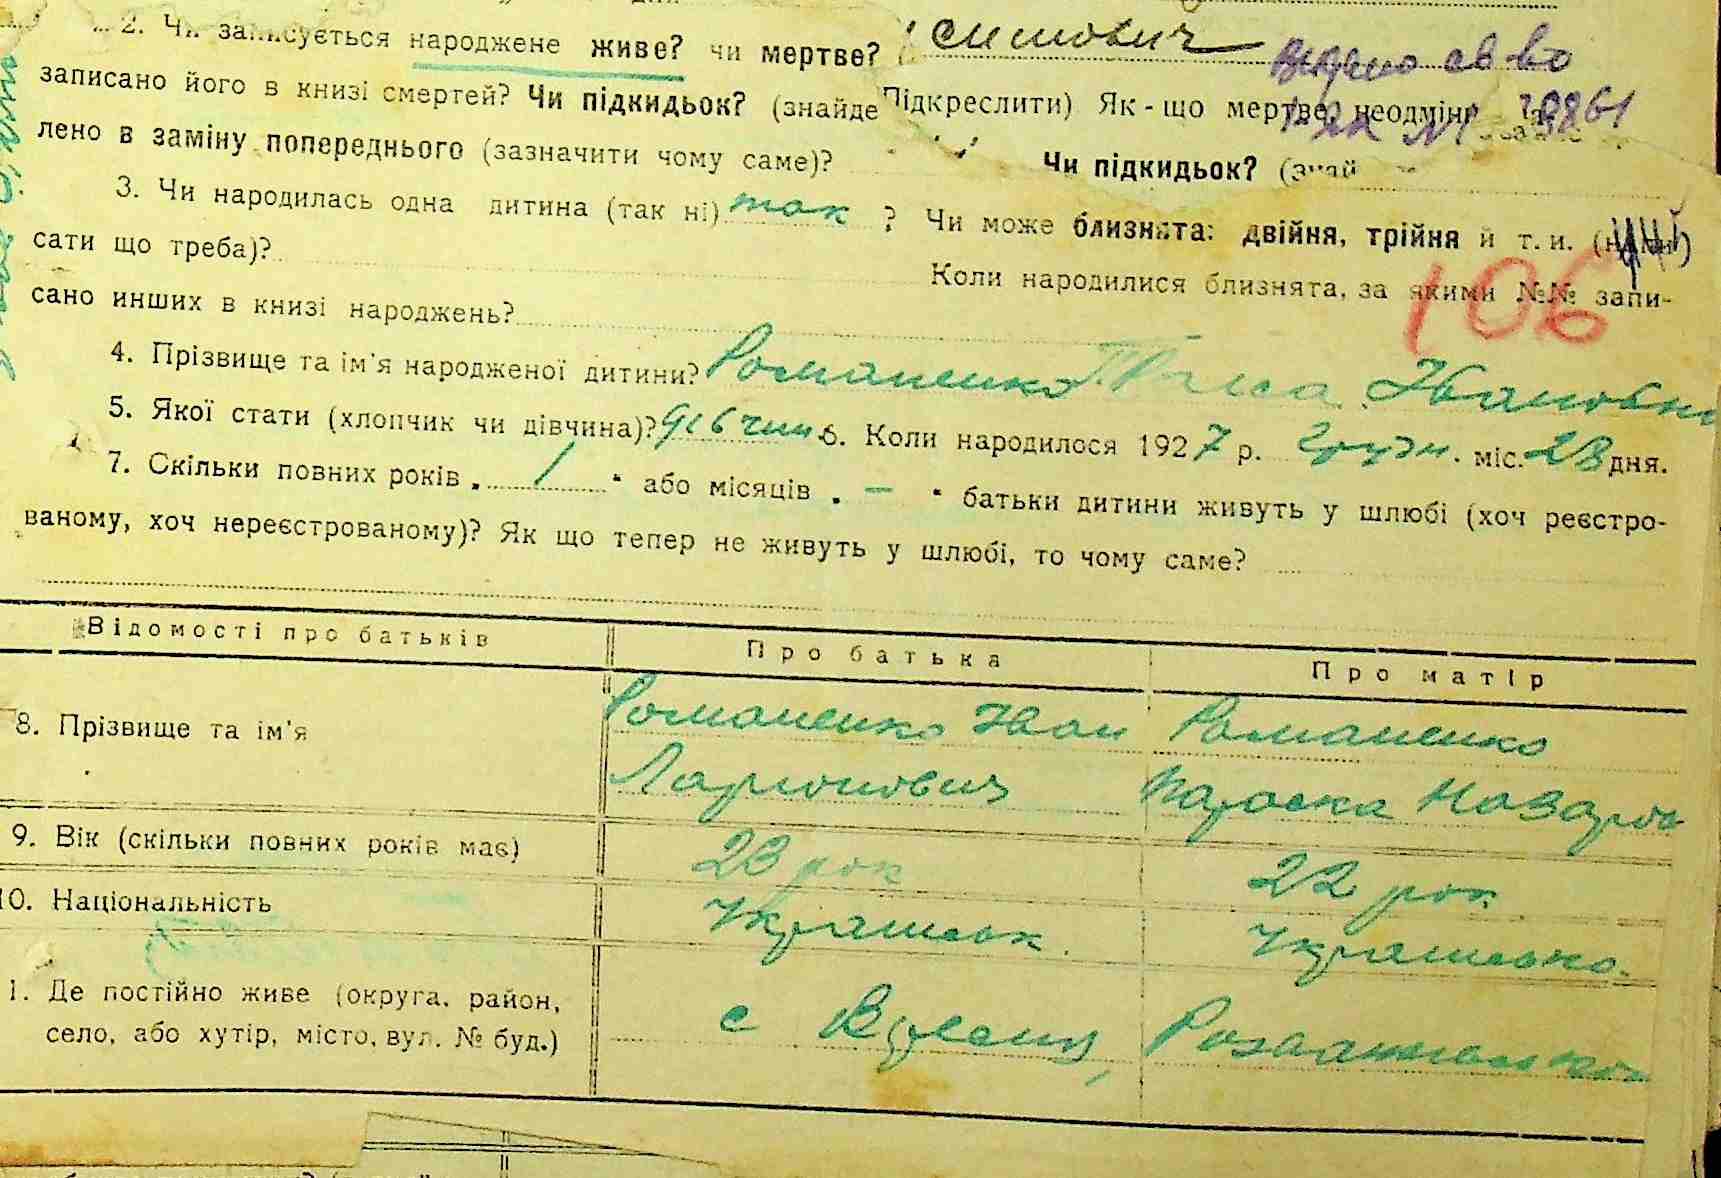 2. Чи записується народжене живе? чи мертве?
видано св-во
записано його в книзі смертей? Чи підкидьок? (знайде Підкреслити) Як-що мертве, неодмінн
лено в заміну попереднього (зазначити чому саме)? Чи підкидьок? (знай
3. Чи народилась одна дитина (так ні) так ? Чи може близнята: двійня, трійня й т. и.
сати що треба)? Коли народилися близнята, за якими №№ запи-
106
сано инших в книзі народжень?
4. Прізвище та ім'я народженої дитини? Романенко Ивановна
5. Якої стати (хлопчик чи дівчина)? дівчин. 6. Коли народилося 1927 р. грудн. міс. 28 дня.
7. Скільки повних років „ 1 " або місяців „ — " батьки дитини живуть у шлюбі (хоч реєстро-
ваному, хоч нереєстрованому)? Як що тепер не живуть у шлюбі, то чому саме?
Відомості про батьків Про батька Про матір
8. Прізвище та ім'я Романенко Иван Романенко
Ларионович Параска Назаров
9. Вік (скільки повних років має) 23 рок 22 рок
10. Національність Українськ. Українська.
1. Де постійно живе (округа, район,
село, або хутір, місто, вул. № буд.) с